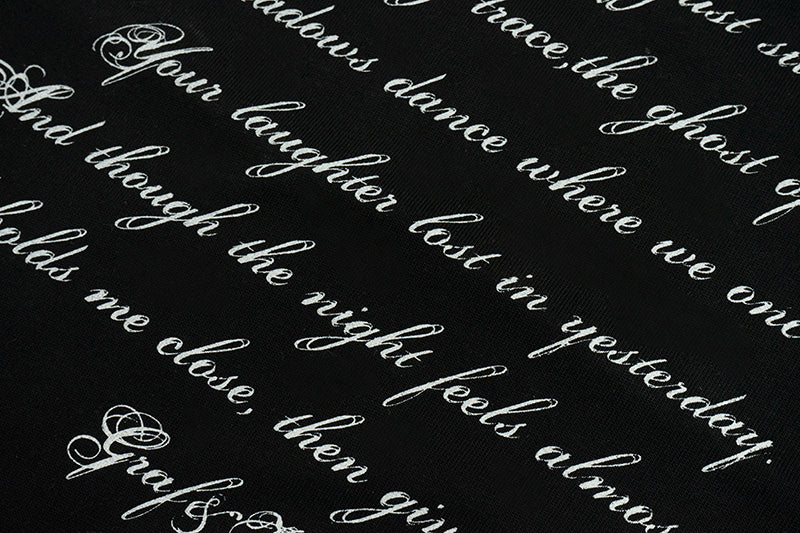 trace, the ghost of
dance where we
Your laughter lost in yesterday.
And though the night feels
me close, then
Graf &